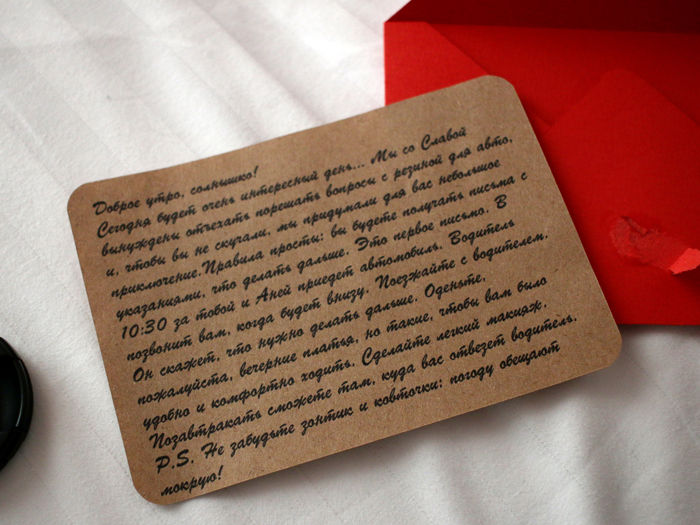 Доброе утро, солнышко!
Сегодня будет очень интересный день... Мы со Славой
вынуждены отъехать порешать вопросы с резиной для авто,
и, чтобы вы не скучали, мы придумали для вас небольшое
приключение.Правила просты: вы будете получать письма с
указаниями, что делать дальше. Это первое письмо. В
10:30 за тобой и Аней приедет автомобиль. Водитель
позвонит вам, когда будет внизу. Поезжайте с водителем.
Он скажет, что нужно делать дальше. Оденьте,
пожалуйста, вечерние платья, но такие, чтобы вам было
удобно и комфортно ходить. Сделайте легкий макияж.
Позавтракать сможете там, куда вас отвезет водитель.
P.S. Не забудьте зонтик и ковточки: погоду обещают
мокрую!